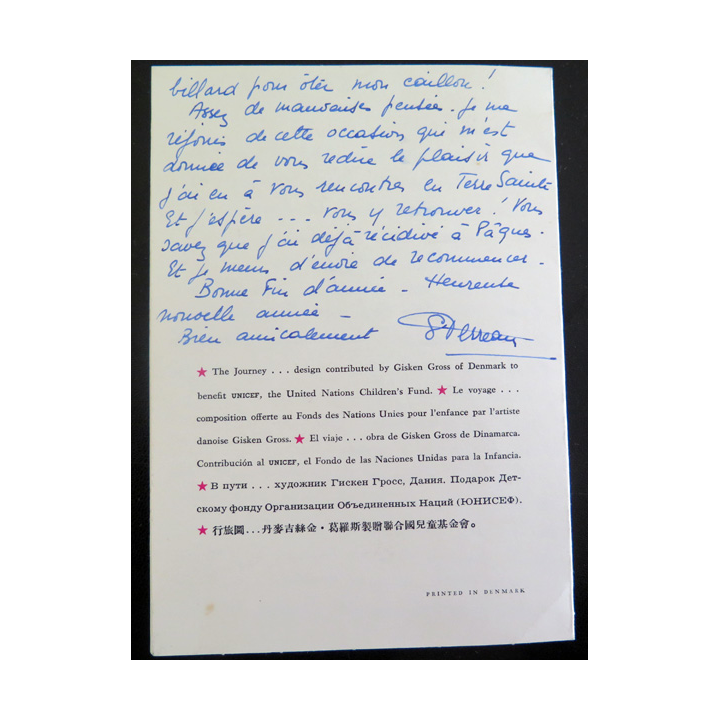 billard pour ôter mon caillou !
Assez de mauvaises pensées. Je me
réjouis de cette occasion qui m'est
donnée de vous redire le plaisir que
j'ai eu à vous rencontrer en Terre Sainte
Et j'espère ... vous y retrouver ! Vous
savez que j'ai déjà récidivé à Pâques.
Et je meurs d'envie de recommencer.
Bonne Fin d'année - Heureuse
nouvelle année -
Bien amicalement
★ The Journey . . . design contributed by Gisken Gross of Denmark to
benefit UNICEF, the United Nations Children's Fund. ★ Le voyage . . .
composition offerte au Fonds des Nations Unies pour l'enfance par l'artiste
danoise Gisken Gross. ★ El viaje . . . obra de Gisken Gross de Dinamarca.
Contribución al UNICEF, el Fondo de las Naciones Unidas para la Infancia.
★ В пути . . . художник Гискен Гросс, Дания. Подарок Дет-
скому фонду Организации Объединенных Наций (ЮНИСЕФ).
★ 行旅圖...丹麥吉絲金·葛羅斯製贈聯合國兒童基金會。
PRINTED IN DENMARK